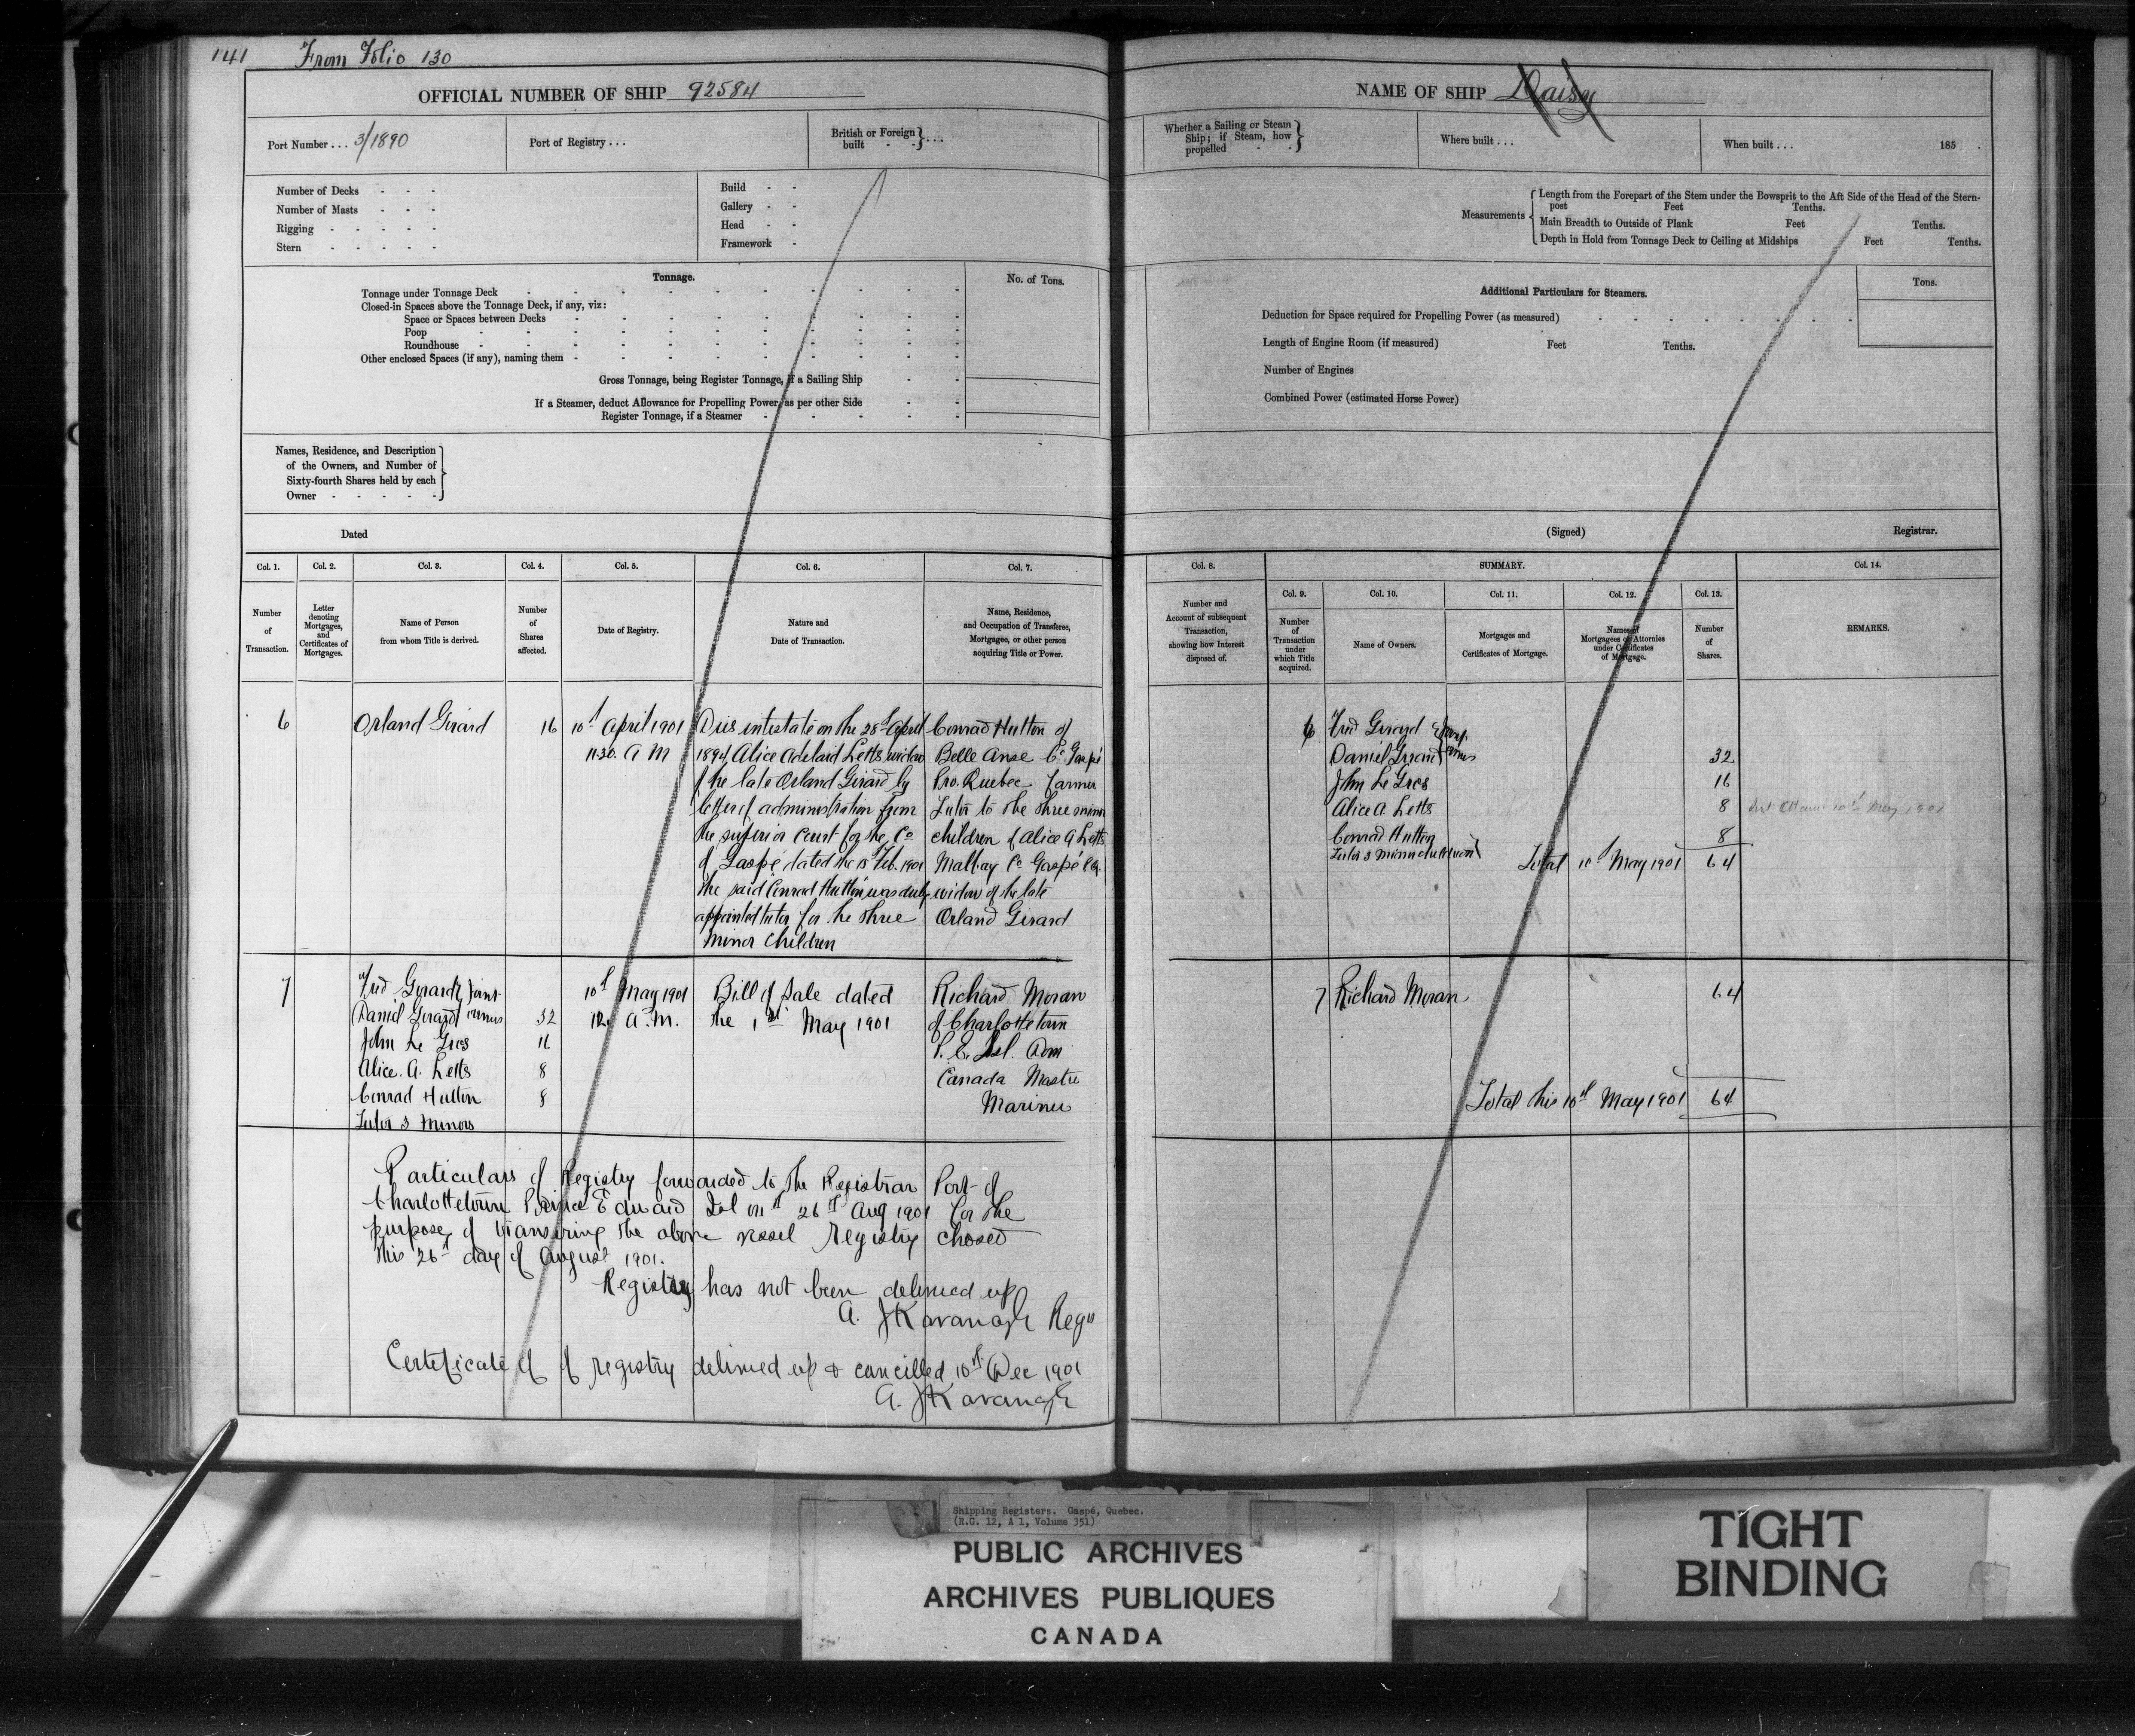 141 From Folio 130
OFFICIAL NUMBER OF SHIP 92584
Port Number . . . 3/1890
Port of Registry . . .
British or Foreign built - - } . . .
Number of Decks - - -
Number of Masts - - -
Rigging - - - - -
Stern - - - - -
Build - -
Gallery - -
Head - -
Framework -
Tonnage.
No. of Tons.
Tonnage under Tonnage Deck
Closed-in Spaces above the Tonnage Deck, if any, viz:
Space or Spaces between Decks
Poop
Roundhouse
Other enclosed Spaces (if any), naming them
Gross Tonnage, being Register Tonnage, if a Sailing Ship
If a Steamer, deduct Allowance for Propelling Power, as per other Side
Register Tonnage, if a Steamer
Names, Residence, and Description
of the Owners, and Number of
Sixty-fourth Shares held by each
Owner - - - - -
Dated
Col. 1. Col. 2. Col. 3. Col. 4. Col. 5. Col. 6. Col. 7.
Number of Transaction.
Letter denoting Mortgages, and Certificates of Mortgages.
Name of Person from whom Title is derived.
Number of Shares affected.
Date of Registry.
Nature and Date of Transaction.
Name, Residence, and Occupation of Transferee, Mortgagee, or other person acquiring Title or Power.
6
Orland Girard
16
10th April 1901
11.30. A M
Dies intestate on the 28th April
1894, Alice Adelaid Letts widow
of the late Orland Girard by
letter of administration from
the superior Court for the Co
of Gaspé dated the 15 Feb. 1901
the said Conrad Hutton was duly
appointed tutor for the three
minor Children
Conrad Hutton of
Belle Anse Co Gaspé
Pro. Quebec farmer
Tutor to the three minor
children of Alice A Letts
Malbay Co Gaspé
widow of the late
Orland Girard
7
Fred Girard & Joint
Daniel Girard owners 32
John Le Gros 16
Alice. A. Letts 8
Conrad Hutton 8
Tutor 3 Minors
10th May 1901
12. A.M.
Bill of Sale dated
the 1st May 1901
Richard Moran
of Charlottetown
P. E. Isl. Dom
Canada Master
Mariner
Particulars of Registry forwarded to the Registrar Port of
Charlottetown Prince Edward Isl on 26th Aug 1901 for the
purpose of transfering the above vessel Registry closed
this 26th day of August 1901.
Registry has not been delivered up
A. J Kavanagh Regr
Certificate of of registry delivered up & cancilled 10th Dec 1901
A. J Kavanagh
NAME OF SHIP Daisy
Whether a Sailing or Steam Ship; if Steam, how propelled - - }
Where built . . .
When built . . . 185 .
Measurements
Length from the Forepart of the Stem under the Bowsprit to the Aft Side of the Head of the Stern-
post Feet Tenths.
Main Breadth to Outside of Plank Feet Tenths.
Depth in Hold from Tonnage Deck to Ceiling at Midships Feet Tenths.
Additional Particulars for Steamers.
Tons.
Deduction for Space required for Propelling Power (as measured)
Length of Engine Room (if measured) Feet Tenths.
Number of Engines
Combined Power (estimated Horse Power)
(Signed) Registrar.
Col. 8. SUMMARY. Col. 14.
Col. 9. Col. 10. Col. 11. Col. 12. Col. 13.
Number and Account of subsequent Transaction, showing how Interest disposed of.
Number of Transaction under which Title acquired.
Name of Owners.
Mortgages and Certificates of Mortgage.
Names of Mortgagees or Attornies under Certificates of Mortgage.
Number of Shares.
REMARKS.
6 Fred Girard &
Daniel Girard 32
John Le Gros 16
Alice A. Letts 8
Conrad Hutton 8
Tutor 3 minor children
Total 10th May 1901 64
7 Richard Moran 64
Total this 10th May 1901 64
Shipping Registers. Gaspé, Quebec.
(R.G. 12, A 1, Volume 351)
PUBLIC ARCHIVES
ARCHIVES PUBLIQUES
CANADA
TIGHT
BINDING